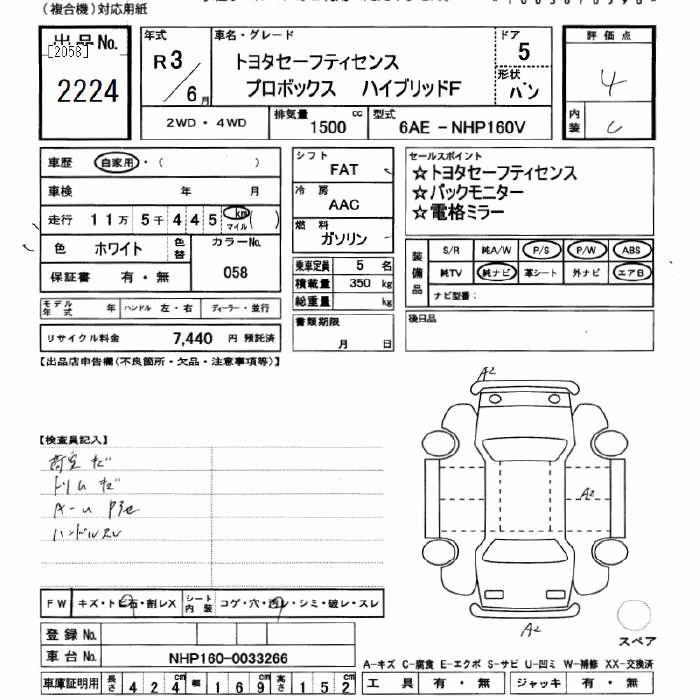 （複合機）対応用紙
出品No.
[2058]
2224
年式
R3/6月
車名・グレード
トヨタセーフティセンス
プロボックス ハイブリッドF
ドア
5
形状
バン
評価点
4
内装
C
2WD・4WD
排気量
1500 cc
型式
6AE-NHP160V
車歴 自家用・（ ）
車検 年 月
走行 11万5千445 km マイル ( )
色 ホワイト 色替
カラーNo.
058
保証書 有・無
シフト
FAT
冷房
AAC
燃料
ガソリン
乗車定員 5 名
積載量 350 kg
総重量 kg
セールスポイント
☆トヨタセーフティセンス
☆バックモニター
☆電格ミラー
装備品
S/R 純A/W P/S P/W ABS
純TV 純ナビ 革シート 外ナビ エアB
ナビ型番：
モデル年式 年 ハンドル 左・右 ディーラー・並行
リサイクル料金 7,440 円 預託済
書類期限
月 日
後日品
【出品店申告欄(不良箇所・欠品・注意事項等)】
A2
【検査員記入】
トリムキズ
ハンドルスレ
A2
A2
FW キズ・トビ石・割レX
シート内装 コゲ・穴・透レ・シミ・破レ・スレ
スペア
登録No.
車台No. NHP160-0033266
車庫証明用 長さ 424 cm 幅 169 cm 高さ 152 cm
A-キズ C-腐食 E-エクボ S-サビ U-凹ミ W-補修 XX-交換済
工具 有・無 ジャッキ 有・無